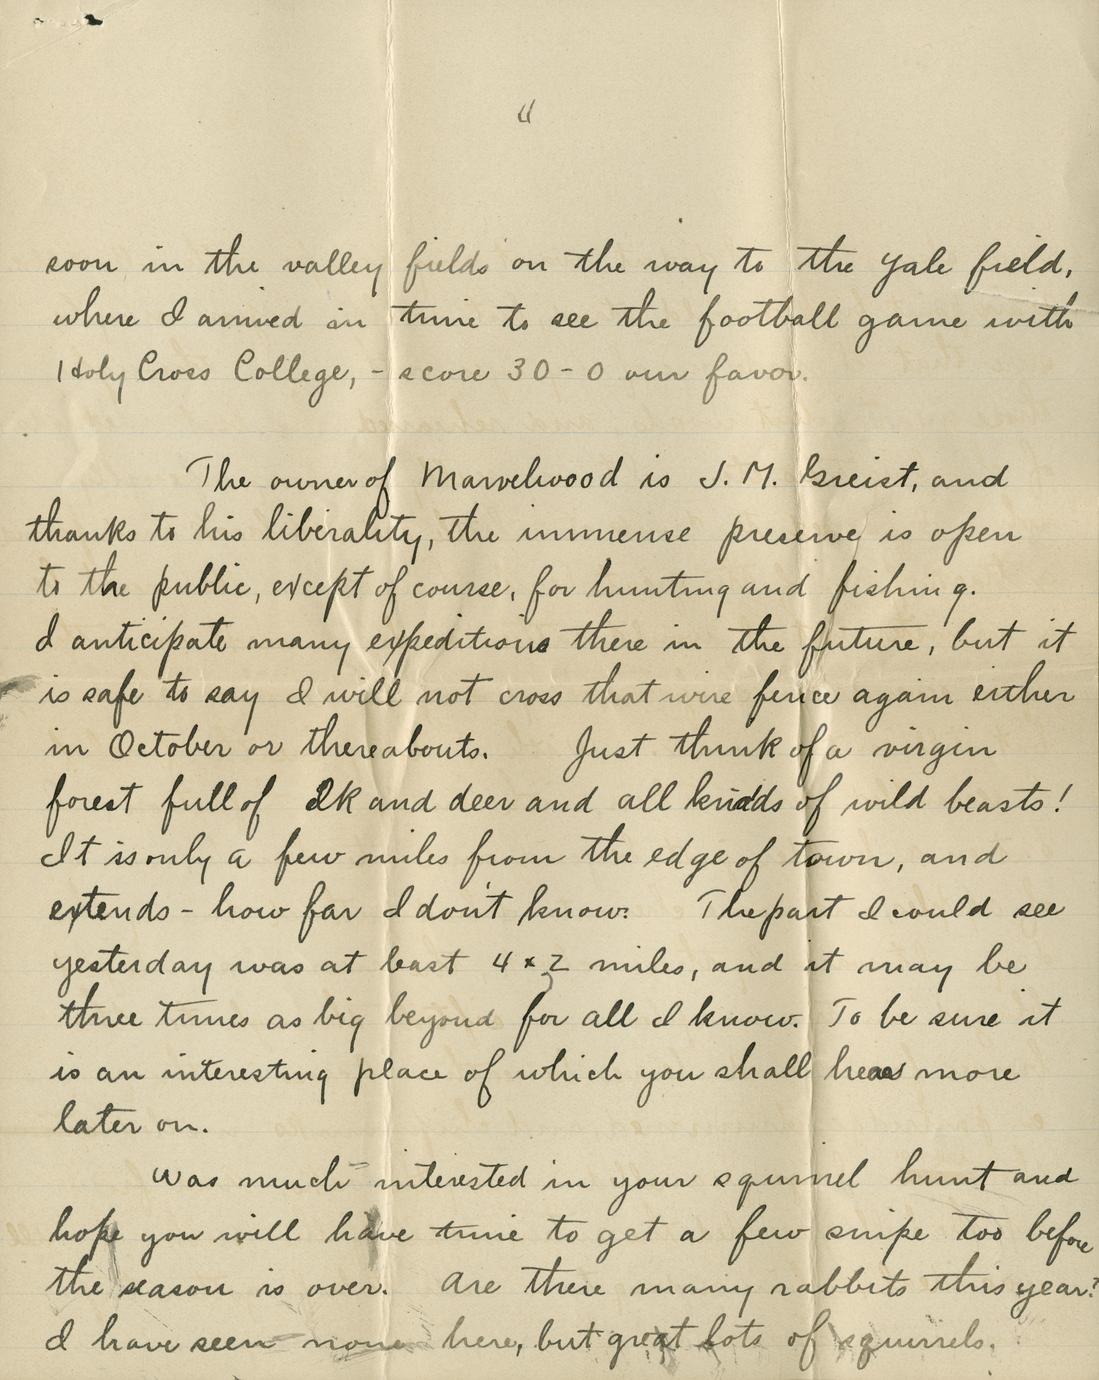 soon in the valley fields on the way to the Yale field,
where I arrived in time to see the football game with
Holy Cross College, - score 30-0 our favor.
The owner of Marvelwood is J. M. Greist, and
thanks to his liberality, the immense preserve is open
to the public, except of course, for hunting and fishing.
I anticipate many expeditions there in the future, but it
is safe to say I will not cross that wire fence again either
in October or thereabouts. Just think of a virgin
forest full of Elk and deer and all kinds of wild beasts!
It is only a few miles from the edge of town, and
extends - how far I don't know. The part I could see
yesterday was at least 4 x 2 miles, and it may be
three times as big beyond for all I know. To be sure it
is an interesting place of which you shall hear more
later on.
Was much interested in your squirrel hunt and
hope you will have time to get a few snipe too before
the season is over. Are there many rabbits this year?
I have seen none here, but great lots of squirrels.